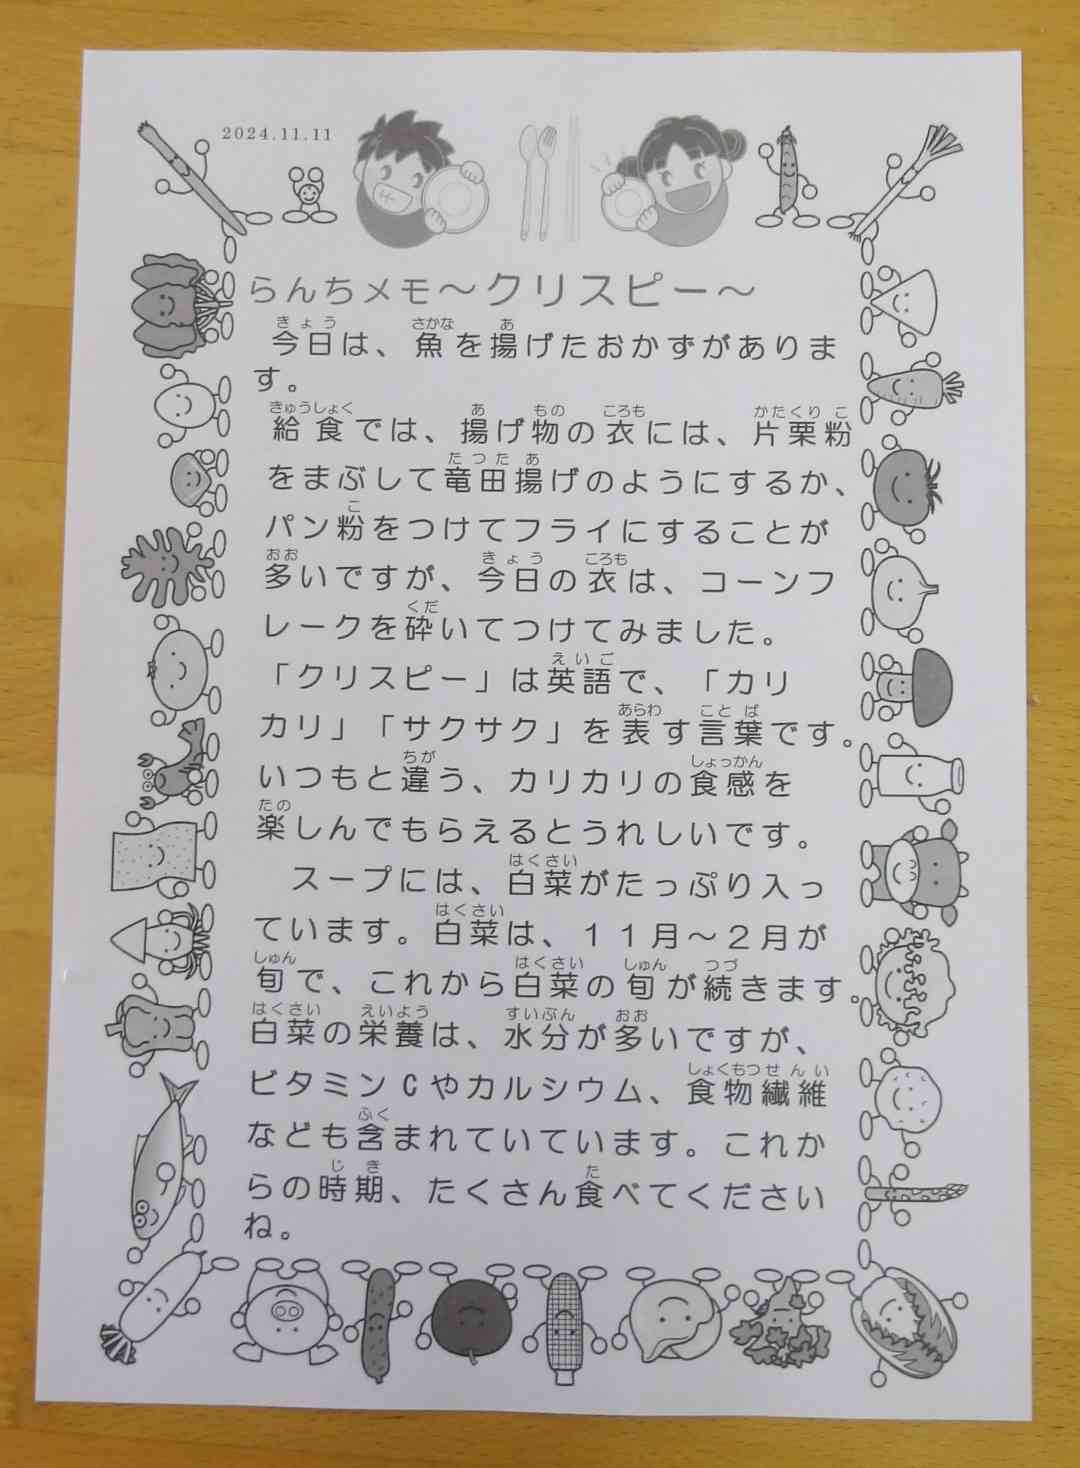 2024.11.11
らんちメモ～クリスピー～
今日は、魚を揚げたおかずがありま
す。
給食では、揚げ物の衣には、片栗粉
をまぶして竜田揚げのようにするか、
パン粉をつけてフライにすることが
多いですが、今日の衣は、コーンフ
レークを砕いてつけてみました。
「クリスピー」は英語で、「カリ
カリ」「サクサク」を表す言葉です。
いつもと違う、カリカリの食感を
楽しんでもらえるとうれしいです。
スープには、白菜がたっぷり入っ
ています。白菜は、１１月～２月が
旬で、これから白菜の旬が続きます。
白菜の栄養は、水分が多いですが、
ビタミンCやカルシウム、食物繊維
なども含まれていています。これか
らの時期、たくさん食べてください
ね。